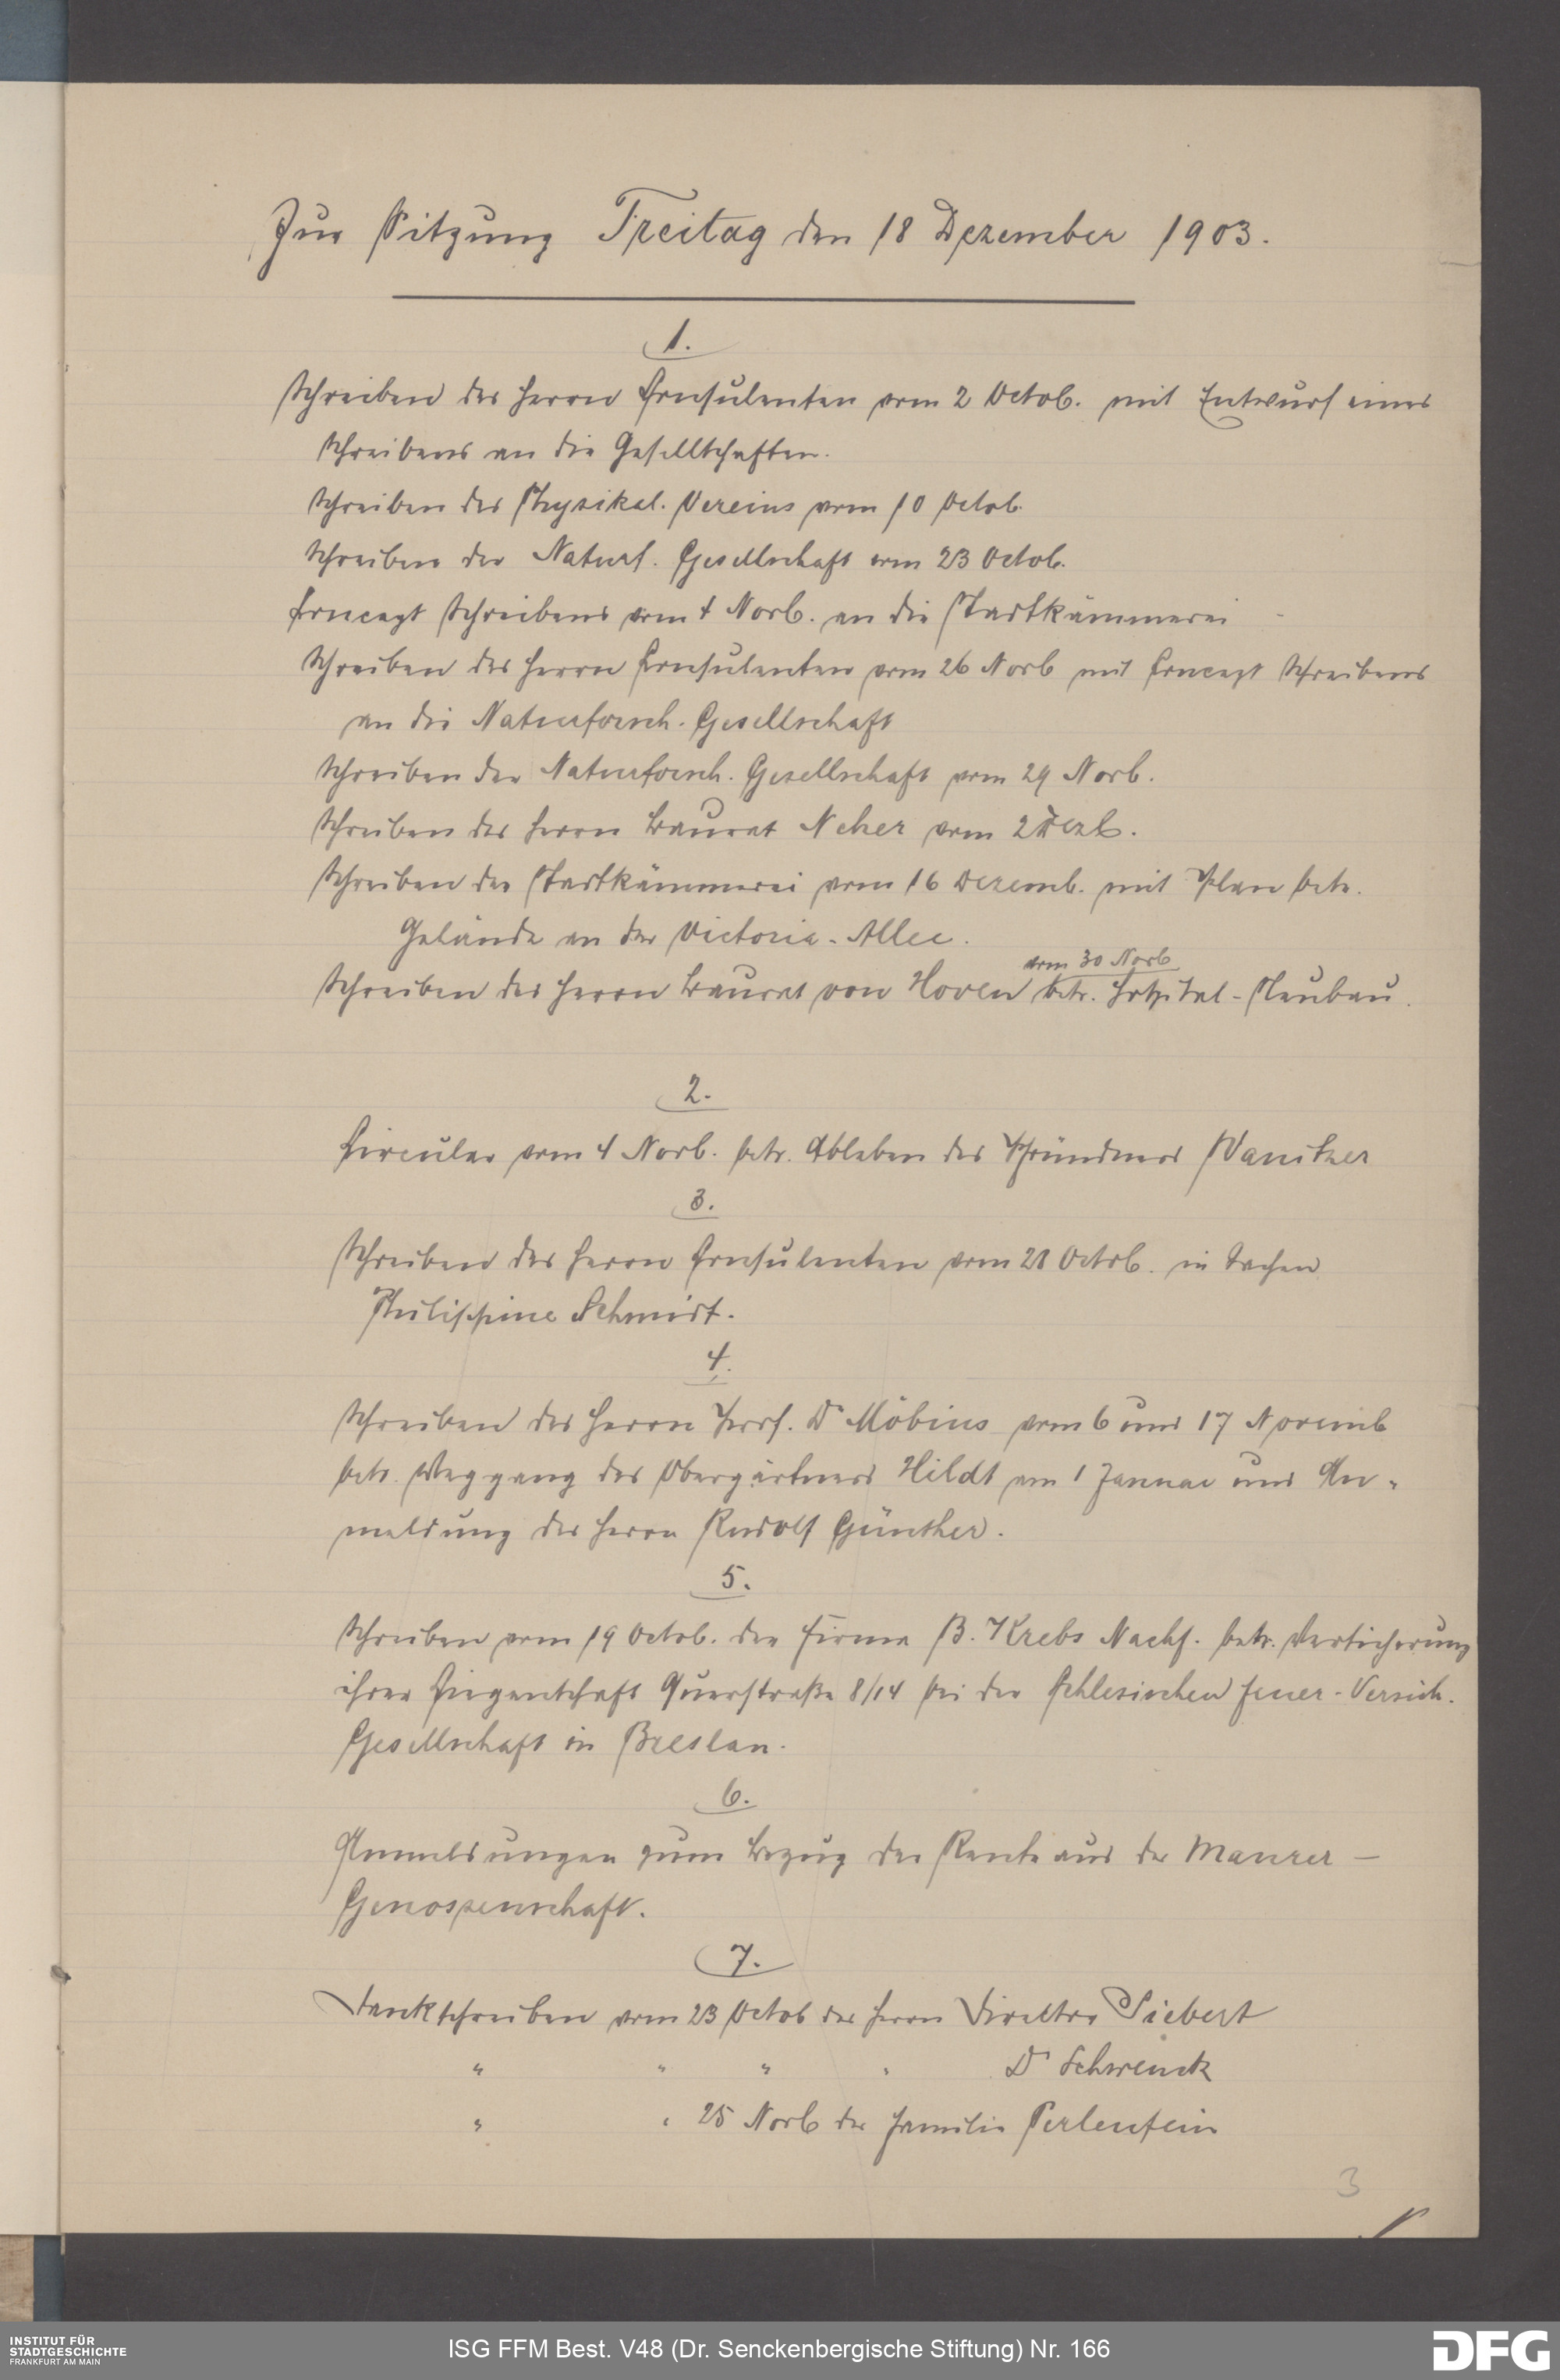 Zur Sitzung Freitag den 18 Dezember 1903.
1.
Schreiben des Herrn Consulenten vom 2 Octob. mit Entwurf eines
Schreibens an die Gesellschaften.
Schreiben des Physikal. Vereins vom 10 Octob.
Schreiben der Naturf. Gesellschaft vom 23 Octob.
Concept Schreibens vom 4 Novb. an die Stadtkämmerei
Schreiben des Herrn Consulenten vom 26 Novb mit Concept Schreibens
an die Naturforsch. Gesellschaft
Schreiben der Naturforsch. Gesellschaft vom 29 Novb.
Schreiben des Herrn Baurat Neher vom 2 Dezb.
Schreiben der Stadtkämmerei vom 16 Dezemb. mit Plan betr.
Gelände an der Victoria-Allee.
vom 30 Novb
Schreiben des Herrn Baurat von Hoven betr. Hospital-Neubau.
2.
Circular vom 4 Novb. betr. Ableben des Pfründners
3.
Schreiben des Herrn Consulenten vom 28 Octob. in Sachen
Philippine Schmidt.
4.
Schreiben des Herrn Prof. Dr Möbius vom 6 und 17 Novemb
betr. Weggang des Obergärtners Hildt am 1 Januar und An-
meldung des Herrn Rudolf Günther.
5.
Schreiben vom 19 Octob. der Firma B. Krebs Nachf. betr. Versicherung
ihrer Liegenschaft Querstraße 8/14 bei der Schlesischen Feuer-Versich.
Gesellschaft in Breslau.
6.
Anmeldungen zum Bezug der Rente aus der Maurer-
Genossenschaft.
7.
Dankschreiben vom 23 Octob des Herrn Direktor Siebert
" " " " Dr Schwenck
" " 25 Novb der Familie
3
INSTITUT FÜR
STADTGESCHICHTE
FRANKFURT AM MAIN
ISG FFM Best. V48 (Dr. Senckenbergische Stiftung) Nr. 166
DFG